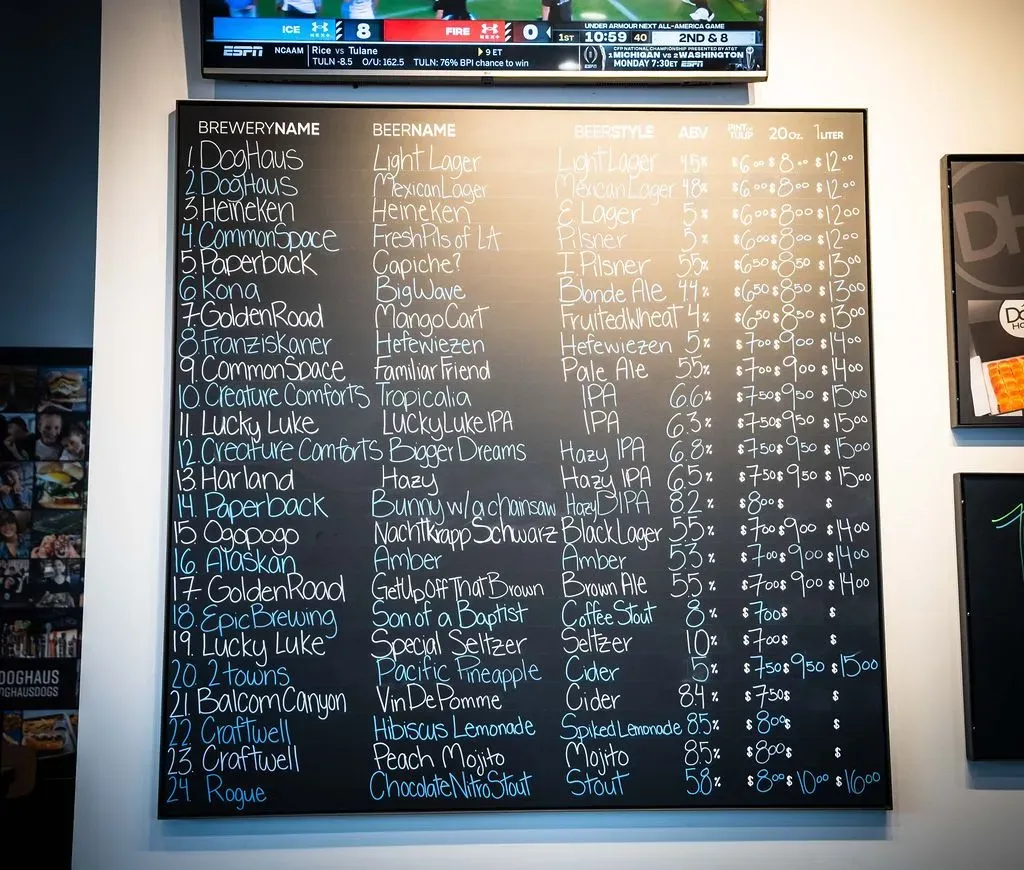 ICE 8 FIRE 0 1ST 10:59 40 2ND & 8
UNDER ARMOUR NEXT ALL-AMERICA GAME
ESPN NCAAM Rice vs Tulane 9 ET
TULN -8.5 O/U: 162.5 TULN: 76% BPI chance to win
CFP NATIONAL CHAMPIONSHIP PRESENTED BY AT&T
1 MICHIGAN vs 2 WASHINGTON
MONDAY 7:30 ET ESPN
BREWERYNAME BEERNAME BEERSTYLE ABV PINT or TULIP 20 oz. 1 LITER
1. DogHaus Light Lager Light Lager 4.5% $6.00 $8.00 $12.00
2. DogHaus Mexican Lager Mexican Lager 4.8% $6.00 $8.00 $12.00
3 Heineken Heineken E. Lager 5% $6.00 $8.00 $12.00
4. CommonSpace Fresh Pils of LA Pilsner 5% $6.00 $8.00 $12.00
5. Paperback Capiche? I. Pilsner 5.5% $6.50 $8.50 $13.00
6 Kona Big Wave Blonde Ale 4.4% $6.50 $8.50 $13.00
7. GoldenRoad Mango Cart Fruited Wheat 4% $6.50 $8.50 $13.00
8. Franziskaner Hefewiezen Hefewiezen 5% $7.00 $9.00 $14.00
9. CommonSpace Familiar Friend Pale Ale 5.5% $7.00 $9.00 $14.00
10. Creature Comforts Tropicalia IPA 6.6% $7.50 $9.50 $15.00
11. Lucky Luke Lucky Luke IPA IPA 6.3% $7.50 $9.50 $15.00
12. Creature Comforts Bigger Dreams Hazy IPA 6.8% $7.50 $9.50 $15.00
13 Harland Hazy Hazy IPA 6.5% $7.50 $9.50 $15.00
14 Paperback Bunny w/ a chainsaw Hazy DIPA 8.2% $8.00 $ $
15 Ogopogo Nachtkrapp Schwarz Black Lager 5.5% $7.00 $9.00 $14.00
16. Alaskan Amber Amber 5.3% $7.00 $9.00 $14.00
17. GoldenRoad Get Up off That Brown Brown Ale 5.5% $7.00 $9.00 $14.00
18. Epic Brewing Son of a Baptist Coffee Stout 8% $7.00 $ $
19. Lucky Luke Special Seltzer Seltzer 10% $7.00 $ $
20. 2 towns Pacific Pineapple Cider 5% $7.50 $9.50 $15.00
21 Balcom Canyon Vin De Pomme Cider 8.4% $7.50 $ $
22 Craftwell Hibiscus Lemonade Spiked Lemonade 8.5% $8.00 $ $
23 Craftwell Peach Mojito Mojito 8.5% $8.00 $ $
24. Rogue Chocolate Nitro Stout Stout 5.8% $8.00 $10.00 $16.00
DH
DOGHAUS